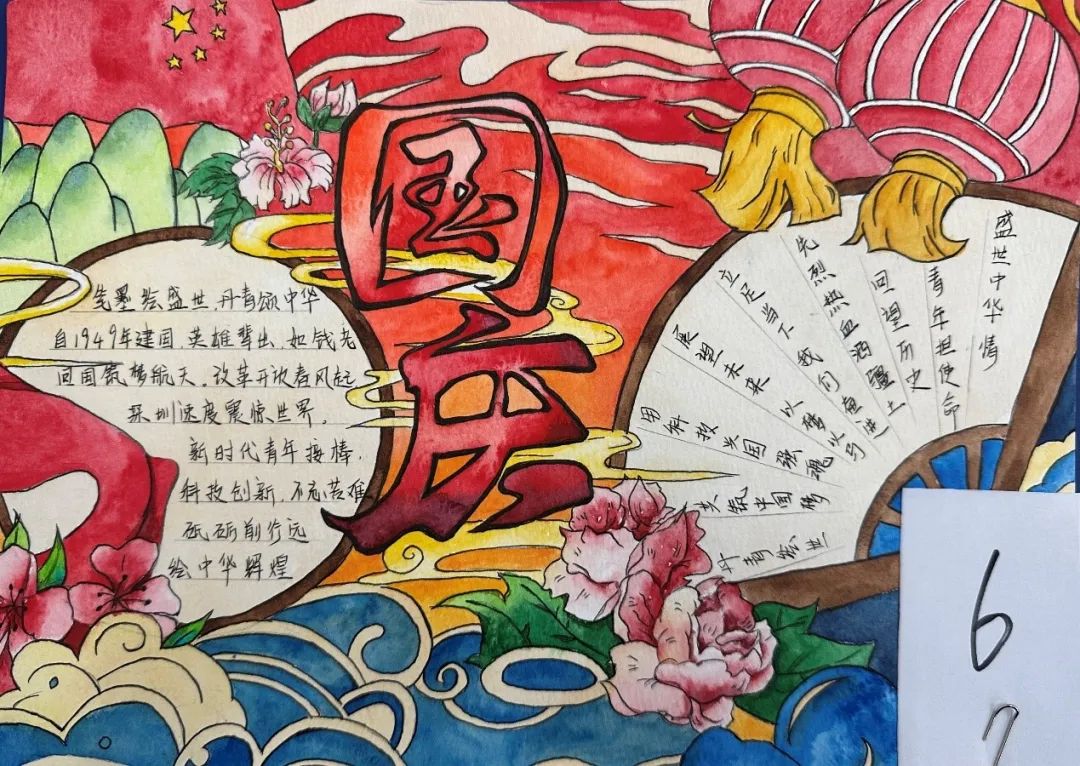 国庆
笔墨绘盛世,丹青颂中华
自1949年建国,英雄辈出,如钱老
回国筑梦航天,改革开放春风起
深圳速度震惊世界,
新时代青年接棒,
科技创新,不畏苦难
砥砺前行远
绘中华辉煌
盛世中华情
青年担使命
回望历史
先烈热血洒疆土
立足当下我们奋进
展望未来以梦以马
用科技兴国强魂
共筑中国梦
丹青绘世
6
7